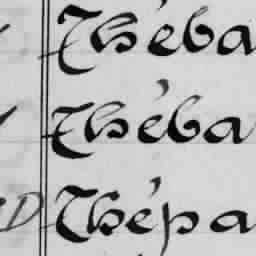 Théba
Théba
D Thépa